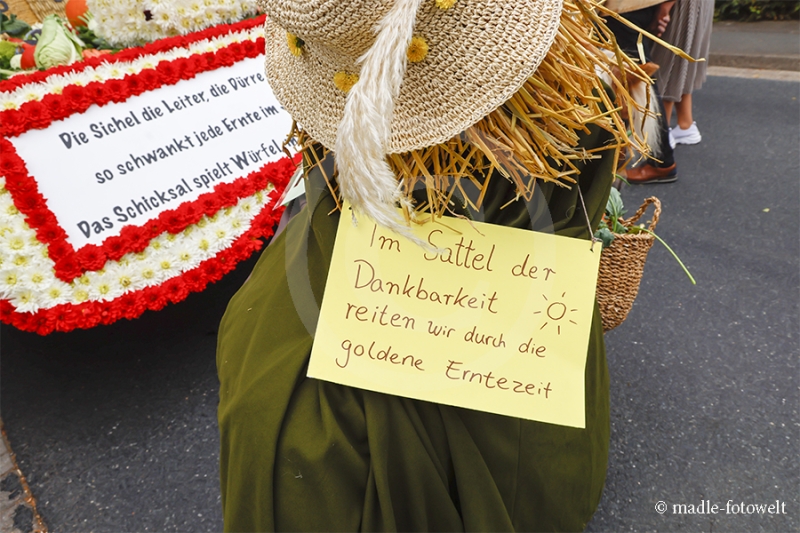 Die Sichel die Leiter, die Dürre
so schwankt jede Ernte im
Das Schicksal spielt Würfel
Im Sattel der
Dankbarkeit
reiten wir durch die
goldene Erntezeit
© madle-fotowelt